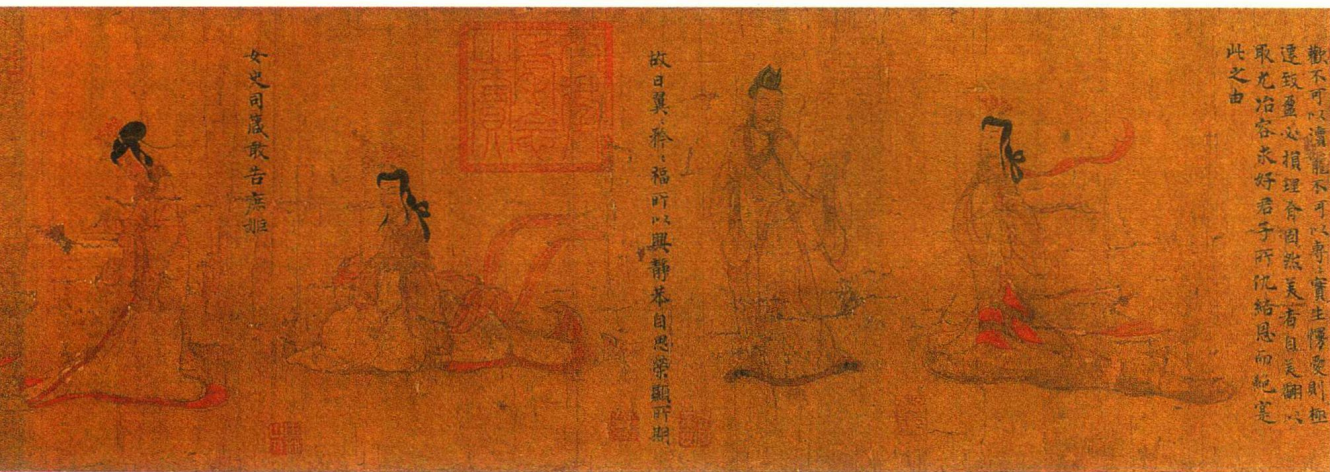 歡不可以瀆寵不可以專〻實生慢愛則極
遷致盈必損理有固然美者自美翩以
取尤冶容求好君子所仇結恩而絕寔
此之由
故曰翼〻矜〻福所以興靜恭自思榮顯所期
女史司箴敢告庶姬